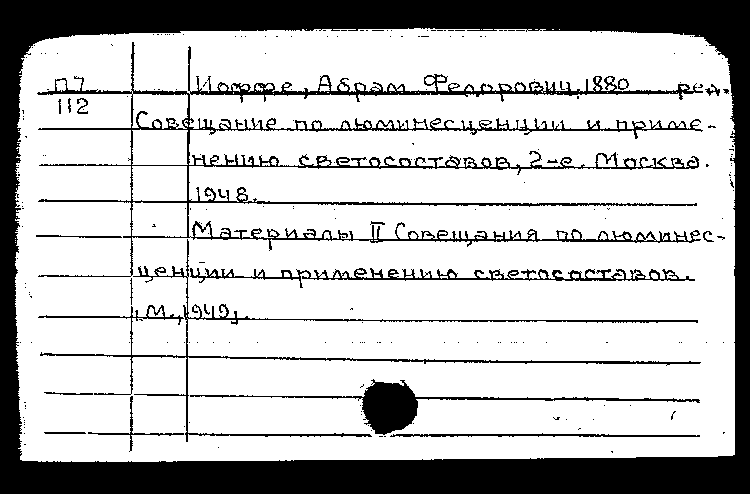 П7 Иоффе, Абрам Федорович, 1880 ред.
112
Совещание по люминесценции и приме-
нению светосоставов, 2-е. Москва.
1948.
Материалы II Совещания по люминес-
ценции и применению светосоставов.
[М., 1949].